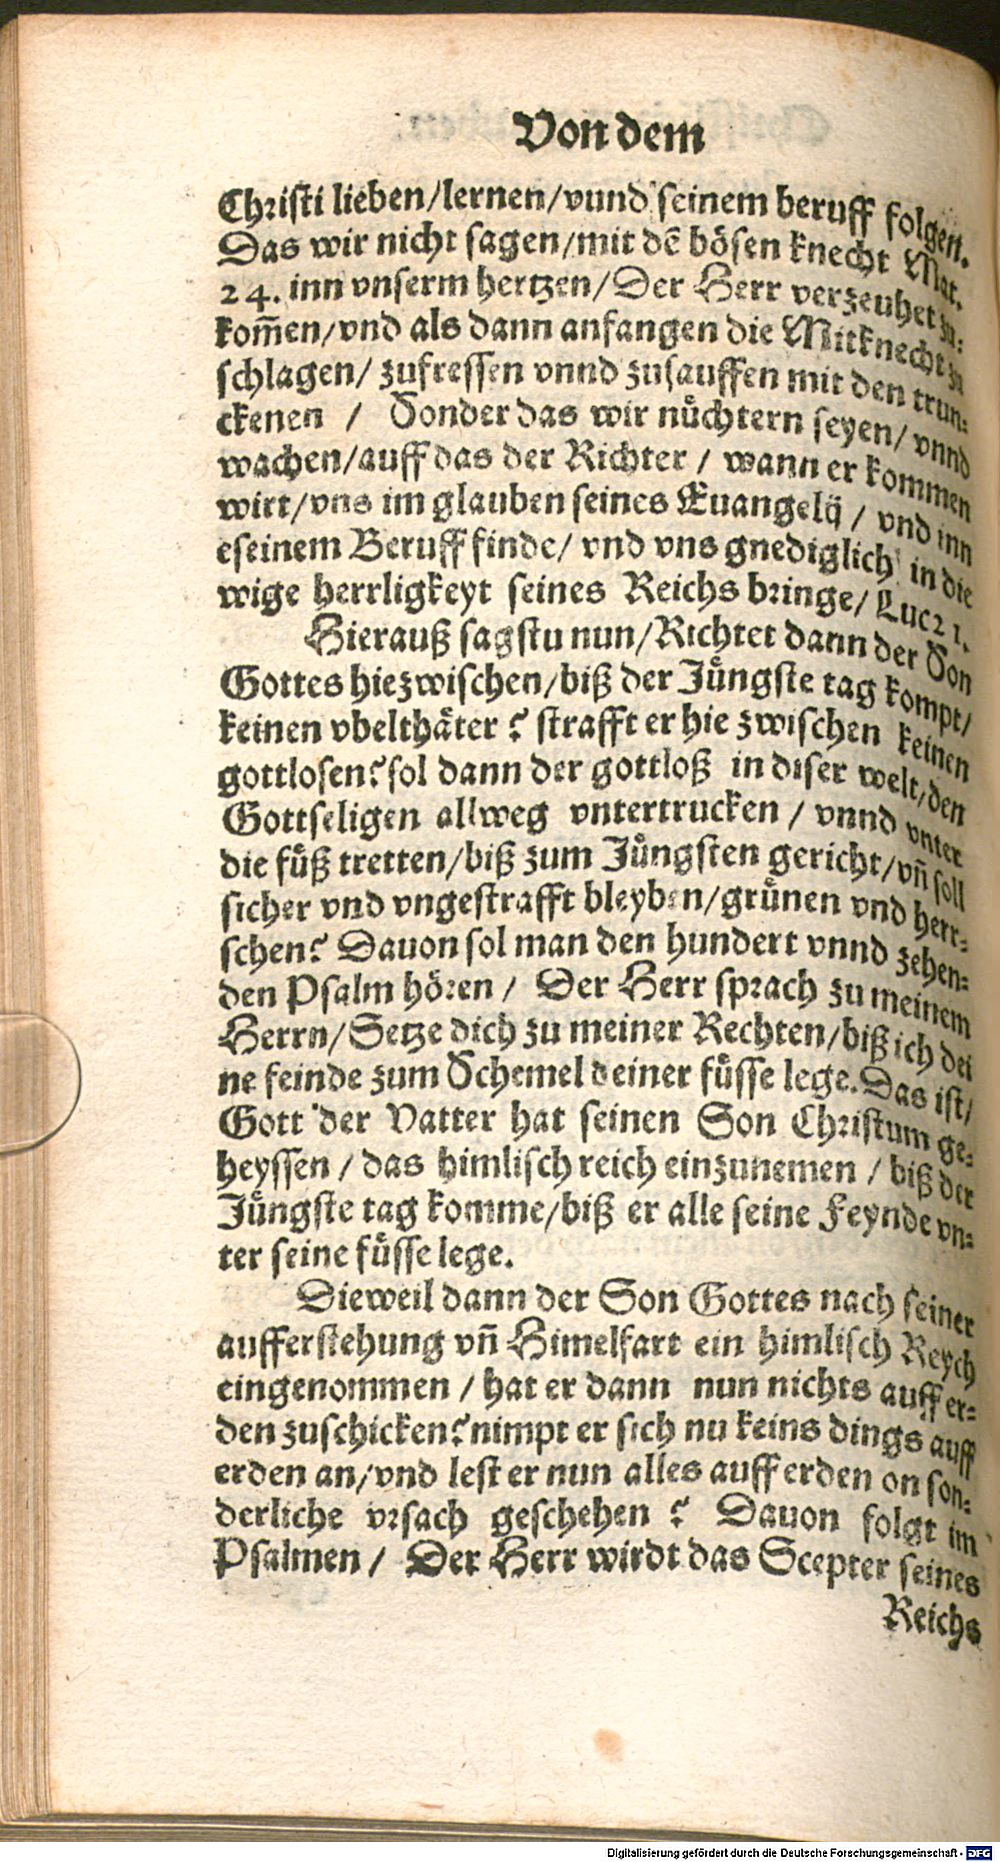 Von dem
Christi lieben/lernen/vnnd seinem beruff folgen.
Das wir nicht sagen/mit dē bösen knecht Mat.
24. inn vnserm hertzen/Der Herr verzeuhet zu-
kom̄en/vnd als dann anfangen die Mitknecht zu
schlagen/ zufressen vnnd zusauffen mit den trun-
ckenen / Sonder das wir nüchtern seyen/ vnnd
wachen/auff das der Richter / wann er kommen
wirt/vns im glauben seines Euangelij / vnd inn
eseinem Beruff finde/ vnd vns gnediglich in die
wige herrligkeyt seines Reichs bringe/ Luc21.
Hierauß sagstu nun/Richtet dann der Son
Gottes hiezwischen/biß der Jüngste tag kompt/
keinen vbelthäter? strafft er hie zwischen keinen
gottlosen?sol dann der gottloß in diser welt/den
Gottseligen allweg vntertrucken / vnnd vnter
die füß tretten/biß zum Jüngsten gericht/vn̄ soll
sicher vnd vngestrafft bleyben/grünen vnd herr-
schen? Dauon sol man den hundert vnnd zehen-
den Psalm hören / Der Herr sprach zu meinem
Herrn/Setze dich zu meiner Rechten/biß ich dei
ne feinde zum Schemel deiner füsse lege. Das ist/
Gott der Vatter hat seinen Son Christum ge-
heyssen / das himlisch reich einzunemen / biß der
Jüngste tag komme/biß er alle seine Feynde vn-
ter seine füsse lege.
Dieweil dann der Son Gottes nach seiner
aufferstehung vn̄ Himelfart ein himlisch Reych
eingenommen / hat er dann nun nichts auff er-
den zuschicken?nimpt er sich nu keins dings auff
erden an/vnd lest er nun alles auff erden on son-
derliche vrsach geschehen ? Dauon folgt im
Psalmen / Der Herr wirdt das Scepter seines
Reichs
Digitalisierung gefördert durch die Deutsche Forschungsgemeinschaft - DFG